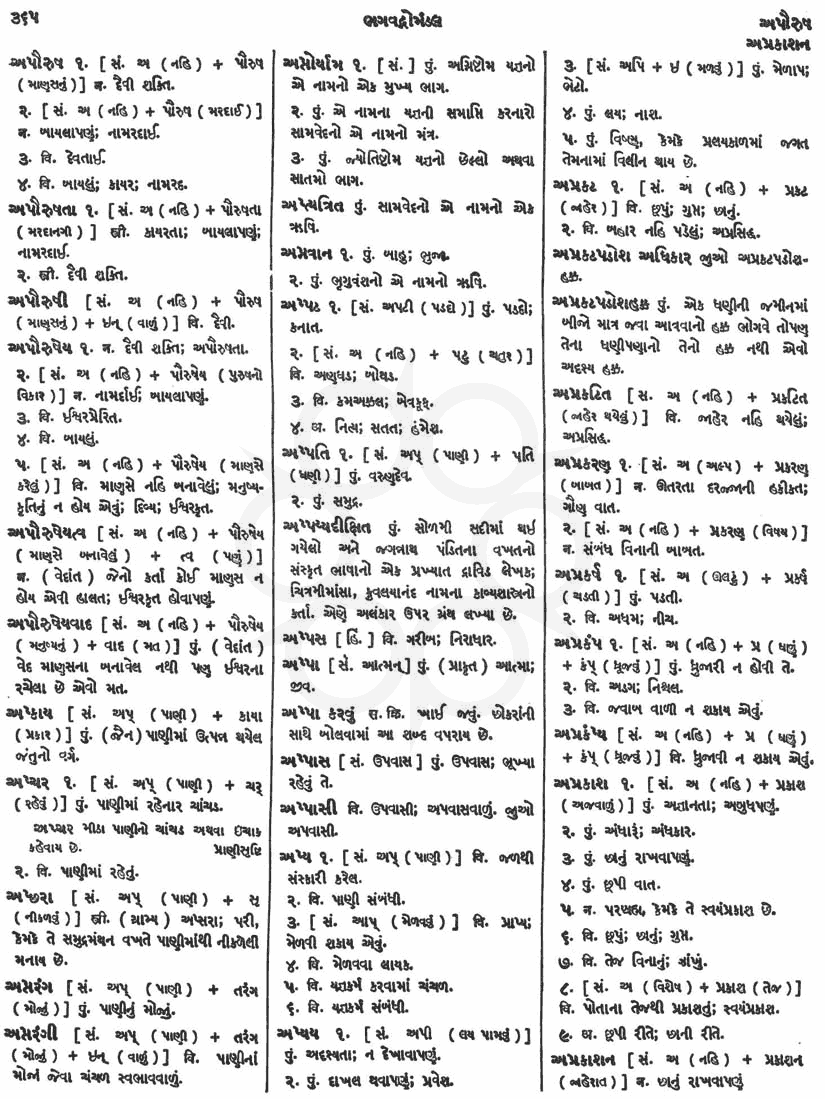 ૩૬૫
ભગવદ્ગોમંડલ
અપૌરુષ
અપ્રકાશન
અપૌરુષ ૧. [ સં. અ ( નહિ ) + પૌરુષ
( માણસનું ) ] ન. દૈવી શક્તિ.
૨. [ સં. અ ( નહિ ) + પૌરુષ ( મરદાઈ ) ]
ન. બાયલાપણું; નામરદાઈ.
૩. વિ. દેવતાઈ.
૪. વિ. બાયલું; કાયર; નામરદ.
અપૌરુષતા ૧. [ સં. અ ( નહિ ) + પૌરુષતા
( મરદાનગી ) ] સ્ત્રી. કાયરતા; બાયલાપણું;
નામરદાઈ.
૨. સ્ત્રી. દૈવી શક્તિ.
અપૌરુષી [ સં. અ ( નહિ ) + પૌરુષ
( માણસનું ) + ઇન્ ( વાળું ) ] વિ. દૈવી.
અપૌરુષેય ૧. ન. દૈવી શક્તિ; અપૌરુષતા.
૨. [ સં. અ ( નહિ ) + પૌરુષેય ( પુરુષનો
વિકાર ) ] ન. નામર્દાઈ; બાયલાપણું.
૩. વિ. ઈશ્વરપ્રેરિત.
૪. વિ. બાયલું.
૫. [ સં. અ ( નહિ ) + પૌરુષેય ( માણસે
કરેલું ) ] વિ. માણસે નહિ બનાવેલું; મનુષ્ય-
કૃતિનું ન હોય એવું; દિવ્ય; ઈશ્વરકૃત.
અપૌરુષેયત્વ [ સં. અ ( નહિ ) + પૌરુષેય
( માણસે બનાવેલું ) + ત્વ ( પણું ) ]
ન. ( વેદાંત ) જેનો કર્તા કોઈ માણસ ન
હોય એવી હાલત; ઈશ્વરકૃત હોવાપણું.
અપૌરુષેયવાદ [ સં. અ ( નહિ ) + પૌરુષેય
( મનુષ્યનું ) + વાદ ( મત ) ] પું. ( વેદાંત )
વેદ માણસના બનાવેલ નથી પણ ઈશ્વરના
રચેલા છે એવો મત.
અપ્કાય [ સં. અપ્ ( પાણી ) + કાયા
( પ્રકાર ) ] પું. ( જૈન ) પાણીમાં ઉત્પન્ન થયેલ
જંતુનો વર્ગ.
અપ્ચર ૧. [ સં. અપ્ ( પાણી ) + ચર્
( રહેવું ) ] પું. પાણીમાં રહેનાર ચાંચડ.
અપ્ચર મીઠા પાણીનો ચાંચડ અથવા ઇંચાક
કહેવાય છે. પ્રાણીસૃષ્ટિ
૨. વિ. પાણીમાં રહેતું.
અપ્છરા [ સં. અપ્ ( પાણી ) + સૃ
( નીકળવું ) ] સ્ત્રી. ( ગ્રામ્ય ) અપ્સરા; પરી,
કેમકે તે સમુદ્રમંથન વખતે પાણીમાંથી નીકળેલી
મનાય છે.
અપ્તરંગ [ સં. અપ્ ( પાણી ) + તરંગ
( મોજું ) ] પું. પાણીનું મોજું.
અપ્તરંગી [ સં. અપ્ ( પાણી ) + તરંગ
( મોજું ) + ઇન્ ( વાળું ) ] વિ. પાણીનાં
મોજાં જેવા ચંચળ સ્વભાવવાળું.
અપ્તોર્યામ ૧. [ સં. ] પું. અગ્નિષ્ટોમ યજ્ઞનો
એ નામનો એક મુખ્ય ભાગ.
૨. પું. એ નામના યજ્ઞની સમાપ્તિ કરનારો
સામવેદનો એ નામનો મંત્ર.
૩. પું. જ્યોતિષ્ટોમ યજ્ઞનો છેલ્લો અથવા
સાતમો ભાગ.
અપ્ત્યત્રિત પું. સામવેદનો એ નામનો એક
ઋષિ.
અપ્નવાન ૧. પું. બાહુ; ભુજા.
૨. પું. ભૃગુવંશનો એ નામનો ઋષિ.
અપ્પટ ૧. [ સં. અપટી ( પડદો ) પું. પડદો;
કનાત.
૨. [ સં. અ ( નહિ ) + પટુ ( ચતુર ) ]
વિ. અણઘડ; બોથડ.
૩. વિ. કમઅક્કલ; બેવકૂફ.
૪. અ. નિત્ય; સતત; હંમેશ.
અપ્પતિ ૧. [ સં. અપ્ ( પાણી ) + પતિ
( ધણી ) ] પું. વરુણદેવ.
૨. પું. સમુદ્ર.
અપ્પય્યદીક્ષિત પું. સોળમી સદીમાં થઈ
ગયેલો અને જગન્નાથ પંડિતના વખતનો
સંસ્કૃત ભાષાનો એક પ્રખ્યાત દ્રાવિડ લેખક;
ચિત્રમીમાંસા, કુવલયાનંદ નામના કાવ્યશાસ્ત્રનો
કર્તા. એણે અલંકાર ઉપર ગ્રંથ લખ્યા છે.
અપ્પસ [ હિં. ] વિ. ગરીબ; નિરાધાર.
અપ્પા [ સં. આત્મન્ ] પું. ( પ્રાકૃત ) આત્મા;
જીવ.
અપ્પા કરવું સ. ક્રિ. ખાઈ જવું. છોકરાંની
સાથે બોલવામાં આ શબ્દ વપરાય છે.
અપ્પાસ [ સં. ઉપવાસ ] પું. ઉપવાસ; ભૂખ્યા
રહેવું તે.
અપ્પાસી વિ. ઉપવાસી; અપવાસવાળું. જુઓ
અપવાસી.
અપ્ય ૧. [ સં. અપ્ ( પાણી ) ] વિ. જળથી
સંસ્કારી કરેલ.
૨. વિ. પાણી સંબંધી.
૩. [ સં. આપ્ ( મેળવવું ) ] વિ. પ્રાપ્ય;
મેળવી શકાય એવું.
૪. વિ. મેળવવા લાયક.
૫. વિ. યજ્ઞકર્મ કરવામાં ચંચળ.
૬. વિ. યજ્ઞકર્મ સંબંધી.
અપ્યય ૧. [ સં. અપી ( લય પામવું ) ]
પું. અદૃશ્યતા; ન દેખાવાપણું.
૨. પું. દાખલ થવાપણું; પ્રવેશ.
૩. [ સં. અપિ + ઇ ( મળવું ) ] પું. મેળાપ;
ભેટો.
૪. પું. લય; નાશ.
૫. પું. વિષ્ણુ, કેમકે પ્રલયકાળમાં જગત
તેમનામાં વિલીન થાય છે.
અપ્રકટ ૧. [ સં. અ ( નહિ ) + પ્રકટ
( જાહેર ) ] વિ. છૂપું; ગુપ્ત; છાનું.
૨. વિ. બહાર નહિ પડેલું; અપ્રસિદ્ધ.
અપ્રકટપડોશ અધિકાર જુઓ અપ્રકટપડોશ-
હક્ક.
અપ્રકટપડોશહક્ક પું. એક ધણીની જમીનમાં
બીજો માત્ર જવા આવવાનો હક્ક ભોગવે તોપણ
તેના ધણીપણાનો તેનો હક્ક નથી એવો
અદૃશ્ય હક્ક.
અપ્રકટિત [ સ. અ ( નહિ ) + પ્રકટિત
( જાહેર થયેલું ) ] વિ. જાહેર નહિ થયેલું;
અપ્રસિદ્ધ.
અપ્રકરણ ૧. [ સં. અ ( અલ્પ ) + પ્રકરણ
( બાબત ) ] ન. ઊતરતા દરજ્જાની હકીકત;
ગૌણ વાત.
૨. [ સં. અ ( નહિ ) + પ્રકરણ ( વિષય ) ]
ન. સંબંધ વિનાની બાબત.
અપ્રકર્ષ ૧. [ સં. અ ( ઊલટું ) + પ્રકર્ષ
( ચડતી ) ] પું. પડતી.
૨. વિ. અધમ; નીચ.
અપ્રકંપ ૧. [ સં. અ ( નહિ ) + પ્ર ( ઘણું )
+ કંપ્ ( ધ્રૂજવું ) ] પું. ધ્રુજારી ન હોવી તે.
૨. વિ. અડગ; નિશ્ચલ.
૩. વિ. જવાબ વાળી ન શકાય એવું.
અપ્રકંપ્ય [ સં. અ ( નહિ ) + પ્ર ( ઘણું )
+ કંપ્ ( ધ્રૂજવું ) ] વિ. ધ્રુજાવી ન શકાય એવું.
અપ્રકાશ ૧. [ સં. અ ( નહિ ) + પ્રકાશ
( અજવાળું ) ] પું. અજ્ઞાનતા; અબુધપણું.
૨. પું. અંધારું; અંધકાર.
૩. પું. છાનું રાખવાપણું.
૪. પું. છૂપી વાત.
૫. ન. પરબ્રહ્મ, કેમકે તે સ્વયંપ્રકાશ છે.
૬. વિ. છૂપું; છાનું; ગુપ્ત.
૭. વિ. તેજ વિનાનું; ઝાંખું.
૮. [ સં. અ ( વિશેષ ) + પ્રકાશ ( તેજ ) ]
વિ. પોતાના તેજથી પ્રકાશતું; સ્વયંપ્રકાશ.
૯. અ. છૂપી રીતે; છાની રીતે.
અપ્રકાશન [ સં. અ ( નહિ ) + પ્રકાશન
( જાહેરાત ) ] ન. છાનું રાખવાપણું